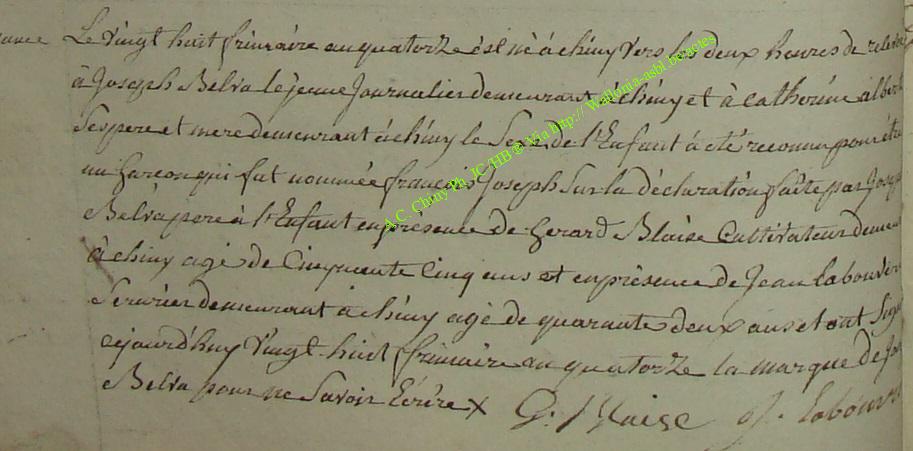 Le Vingt huit frimaire an quatorze est né à chiny vers les deux heures de relevée
à Joseph Belva le jeune Journalier demeurant à chiny et à Catherine albert
Ses pere et mere demeurant à chiny le Sexe de l'Enfant à eté reconnu pour être
un garcon qui fut nommée françois Joseph Sur la déclaration faite par Joseph
Belva pere à l'Enfant en présence de Gerard Blaise Cultivateur demeurant
à chiny agé de Cinquante Cinq ans et en présence de Jean labouver
Serurier demeurant à chiny agé de quarante deux ans et ont Signé
cejourd'huy Vingt huit frimaire an quatorze la marque de Jos
Belva pour ne Savoir Ecrire X G. Blaise J. labouv
A.C. Chiny Ph. JC/HB ® Via http:// Wallonia-asbl.be/actes